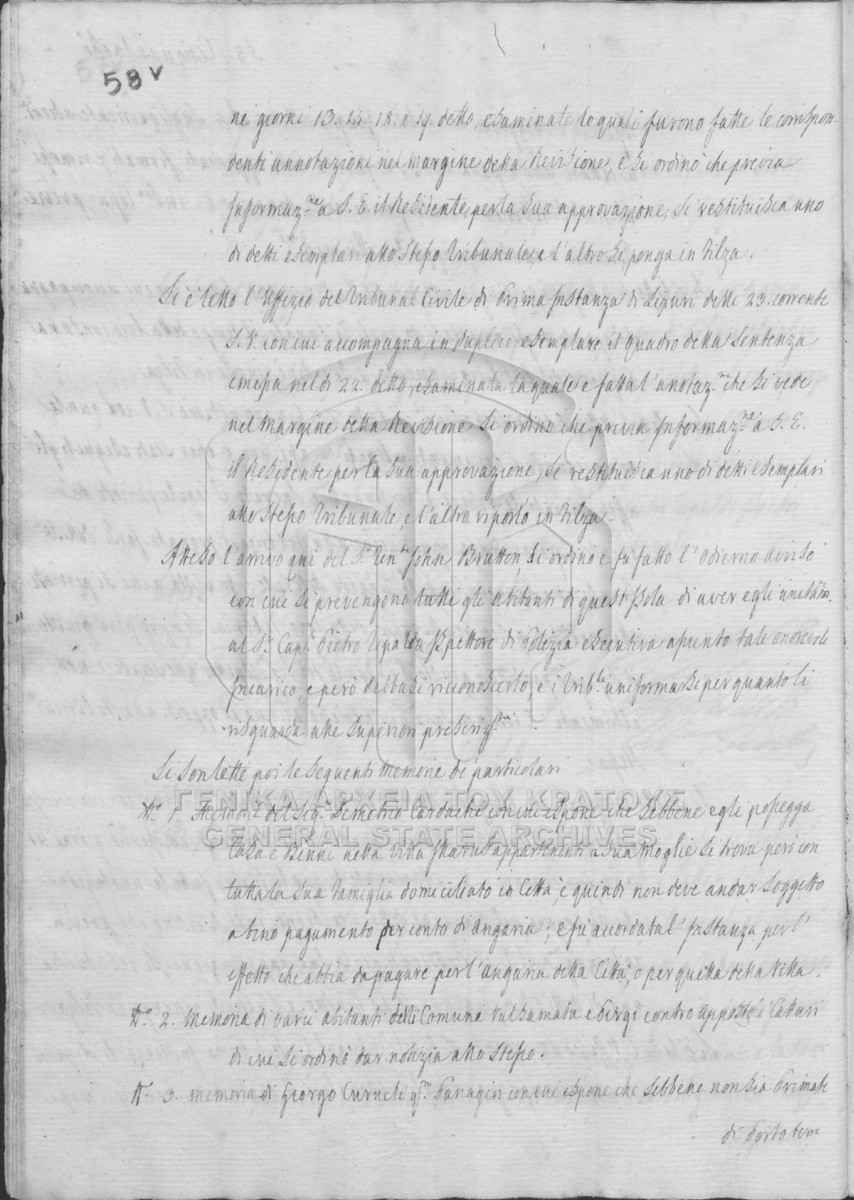 58v
ne' giorni 13. 14. 18. e 19. detto, esaminate le quali furono fatte le corrispon-
denti annotazioni nel margine della Revisione, e si ordinò che previa
Informaz.ne a S. E. il Residente per la sua approvazione, si restituisca uno
di detti esemplari allo stesso Tribunale, e l'altro si ponga in Filza.
Si è letto l'Uffizio del Tribunal Civile di Prima Instanza di Lixuri delli 23. corrente
S. V. con cui accompagna in duplice esemplare il quadro della Sentenza
emessa nel dì 22. detto, esaminata la quale e fatta l'anotaz.ne che si vede
nel margine della Revisione si ordinò che previa Informaz.ne a S. E.
il Residente per la sua approvazione, si restituisca uno di detti esemplari
allo stesso Tribunale, e l'altro riposto in Filza.
Atteso l'arrivo qui del S.r Ten.te John Brutton, si ordinò e fu fatto l'odierno avviso
con cui si prevengono tutti gli abitanti di quest'Isola di aver egli
al S.r Cap.n Pietro Ispettore di Polizia esecutiva assunto tale onorevole
Incarico, e però debbasi riconoscerlo, e i uniformarsi per quanto li
risguarda alle superiori prescriz.ni
Si son lette poi le seguenti memorie de particolari
N.o 1. Memoria del Sig.r Demetrio con cui espone che sebbene egli possegga
Casa e Benni nella Villa appartenenti a sua moglie si trova però con
tutta la sua famiglia domiciliato in Città, e quindi non deve andar soggetto
a pagamento per conto di Angaria; e fu accordata l'Instanza per l'
effetto che abbia da pagare per l'angaria della Città, o per quella della Villa.
N.o 2. Memoria di varii abitanti delli Comune Valsamata e Pirgi contro Appostoli
di cui si ordinò dar notizia allo stesso.
N.o 3. memoria di Giorgo q.m Panagin con cui espone che sebbene non sia Primate
di Porto
ΓΕΝΙΚΑ ΑΡΧΕΙΑ ΤΟΥ ΚΡΑΤΟΥΣ
GENERAL STATE ARCHIVES